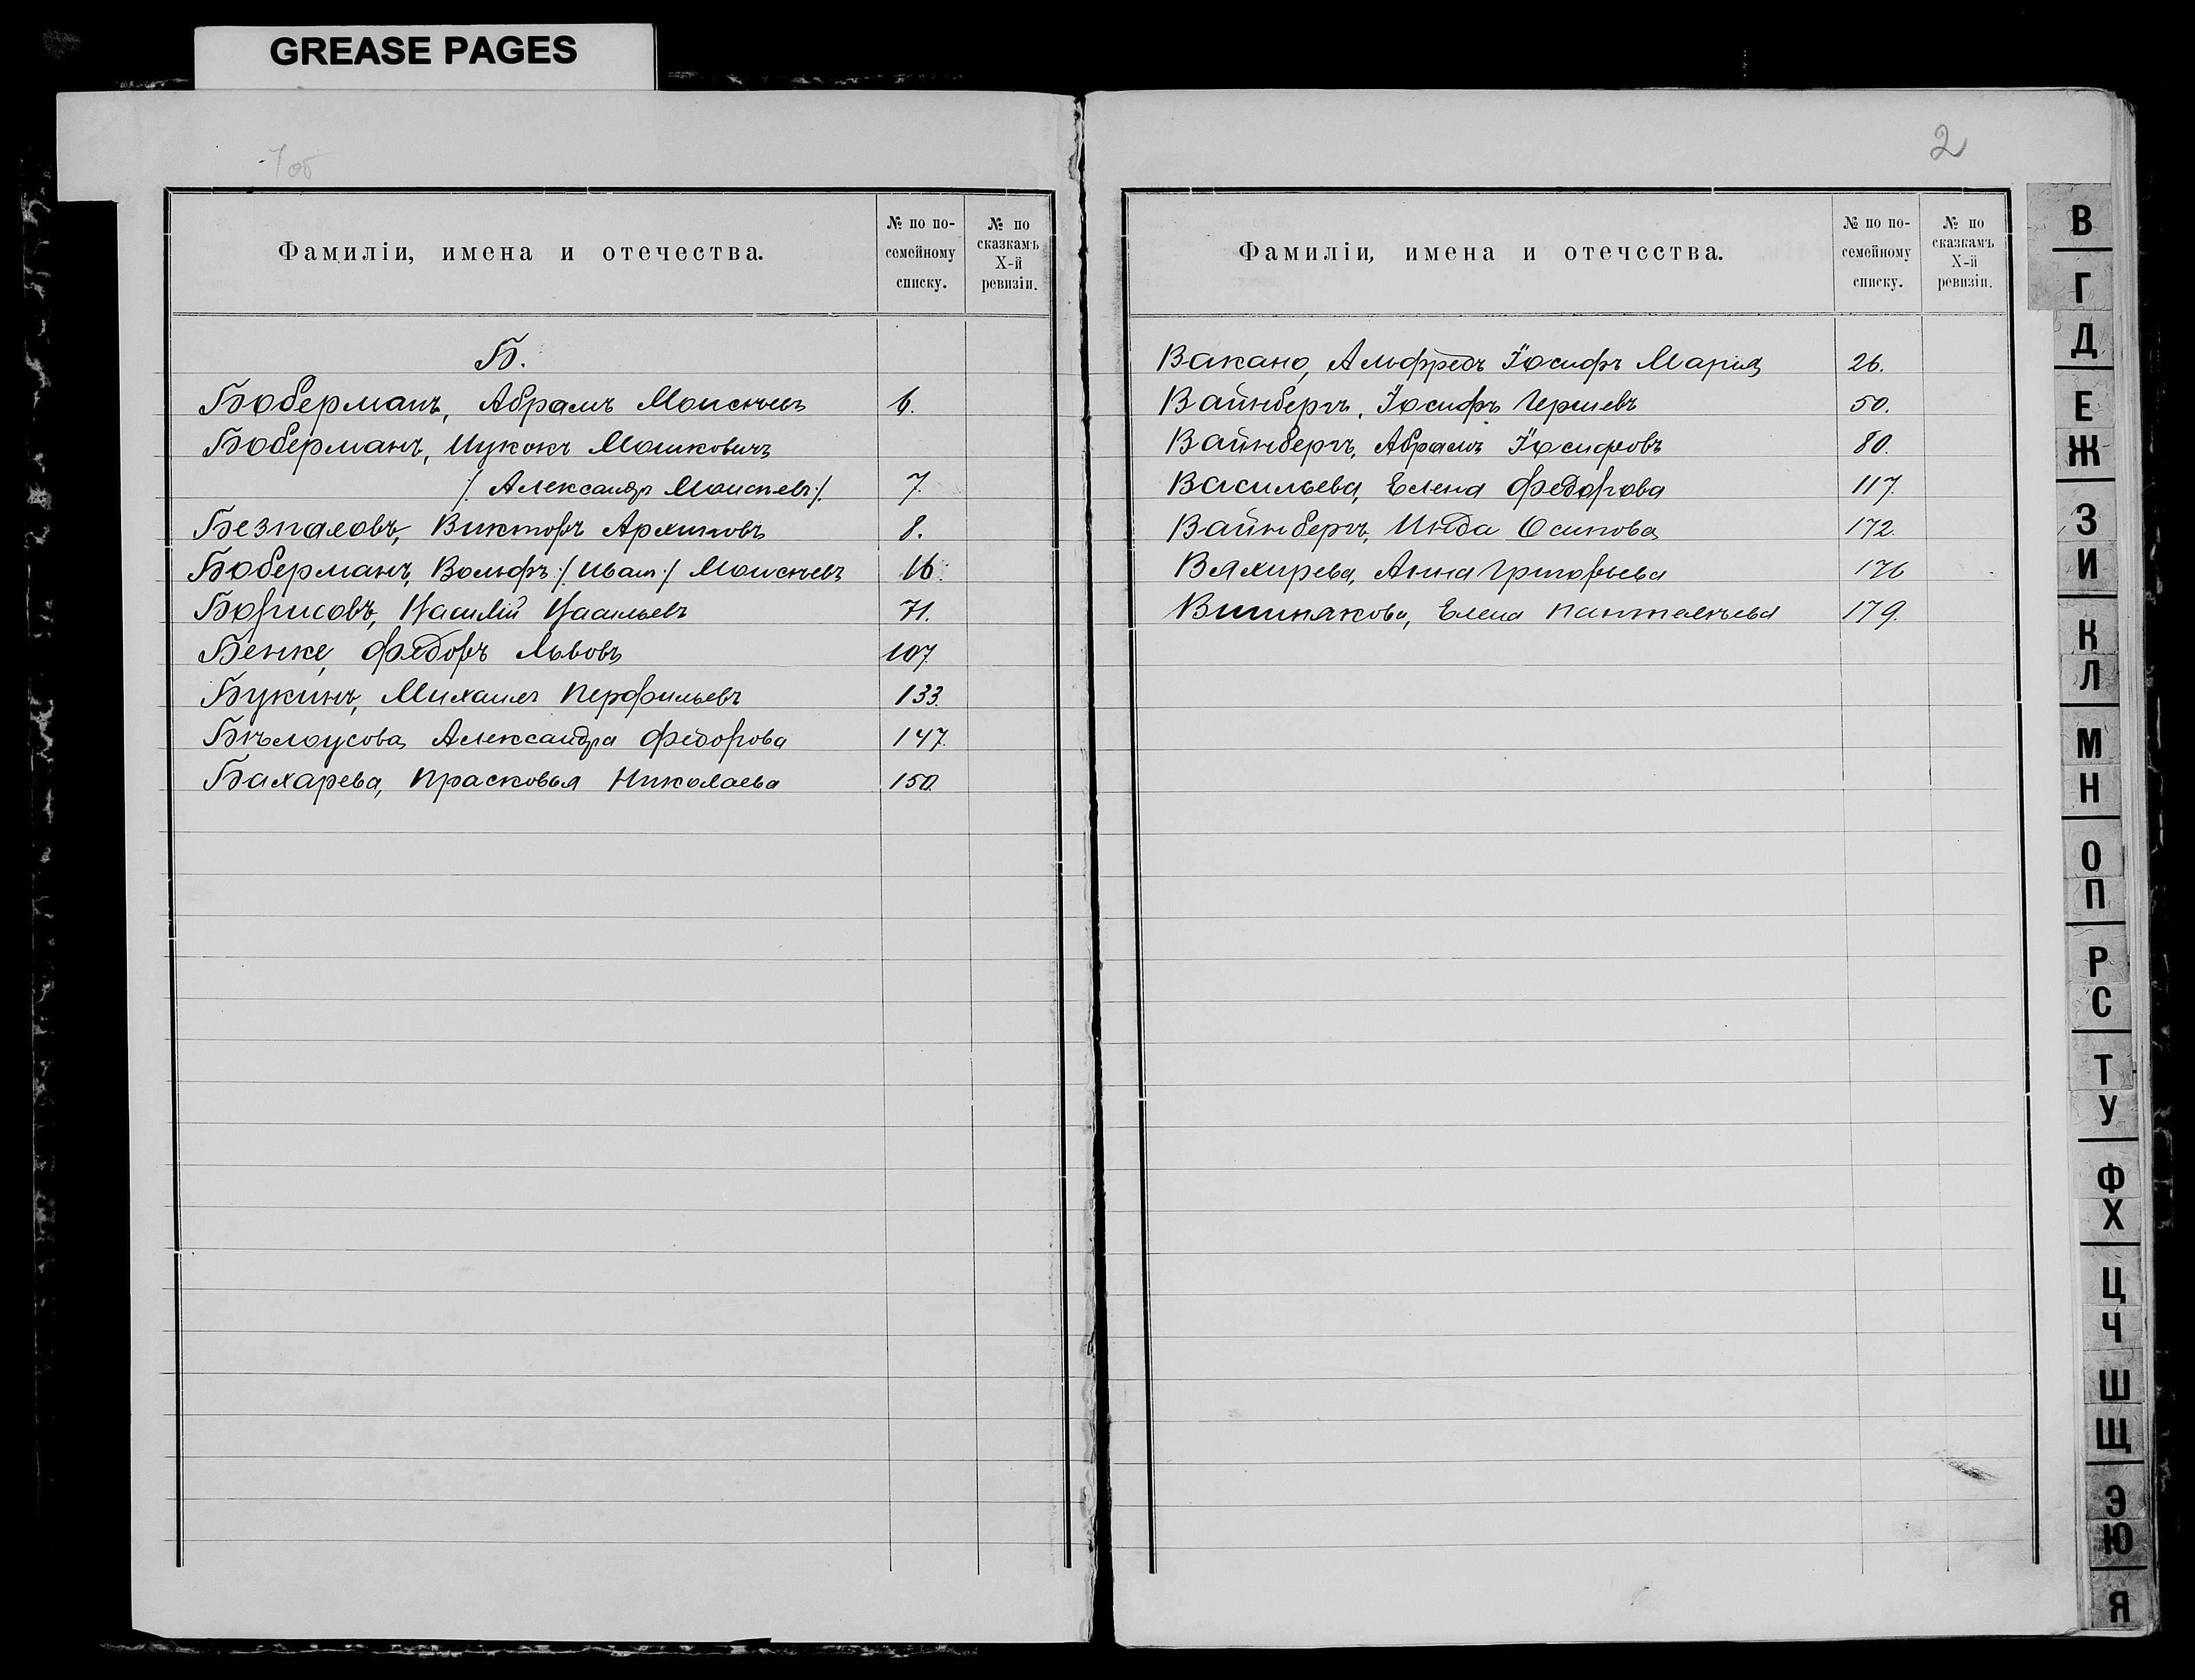 GREASE PAGES
1 об
Фамиліи, имена и отечества.
№ по по-
семейному
списку.
№ по
сказкамъ
X-й
ревизіи.
Б.
Боберманъ, Абрамъ Моисѣевъ 6.
Боберманъ, Ицкокъ Мошковичъ
/: Александръ Моисѣевъ :/ 7.
Безпаловъ, Викторъ Архиповъ 8.
Боберманъ, Вольфъ /: Иванъ :/ Моисѣевъ 16.
Борисовъ, Василій Васильевъ 71.
Бенке, Федоръ Львовъ 107.
Букинъ, Михаилъ Перфильевъ 133.
Бѣлоусова, Александра Федорова 147.
Бахарева, Прасковья Николаева 150.
2
Фамиліи, имена и отечества.
№ по по-
семейному
списку.
№ по
сказкамъ
X-й
ревизіи.
Вакано, Альфредъ Іосифъ Марія 26.
Вайнбергъ, Іосифъ Гершевъ 50.
Вайнбергъ, Абрамъ Іосифовъ 80.
Васильева, Елена Федорова 117.
Вайнбергъ, Инда Осипова 172.
Вяхирева, Анна Григорьева 176
Вишнякова, Елена Пантелѣева 179.
В
Г
Д
Е
Ж
З
И
К
Л
М
Н
О
П
Р
С
Т
У
Ф
Х
Ц
Ч
Ш
Щ
Э
Ю
Я